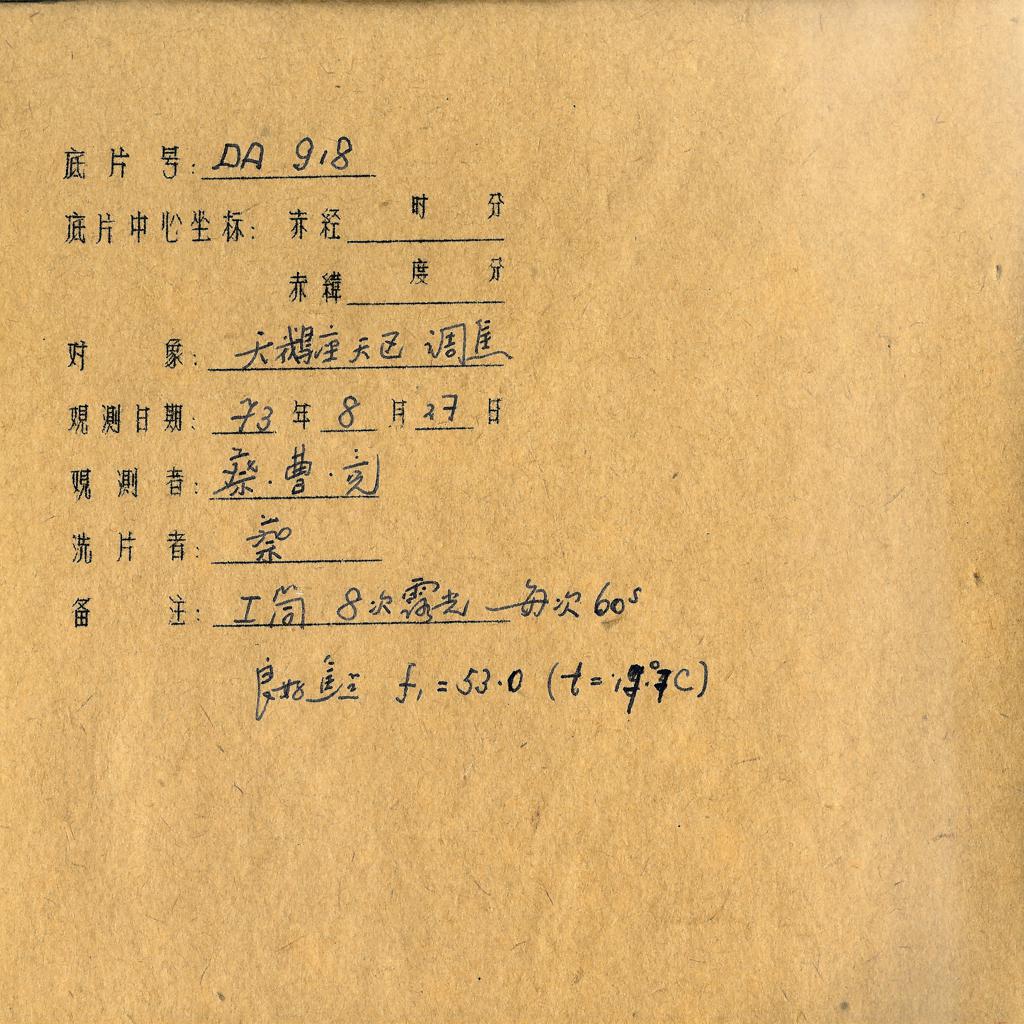 底片号: DA 918
底片中心坐标: 赤经 时 分
赤緯 度 分
对象: 天鹅座天区 调焦
观测日期: 73 年 8 月 27 日
观测者: 蔡·曹·亮
洗片者: 蔡
备注: I筒 8次露光 每次 60s
良好焦点 f₁ = 53.0 (t = 19.°7C)